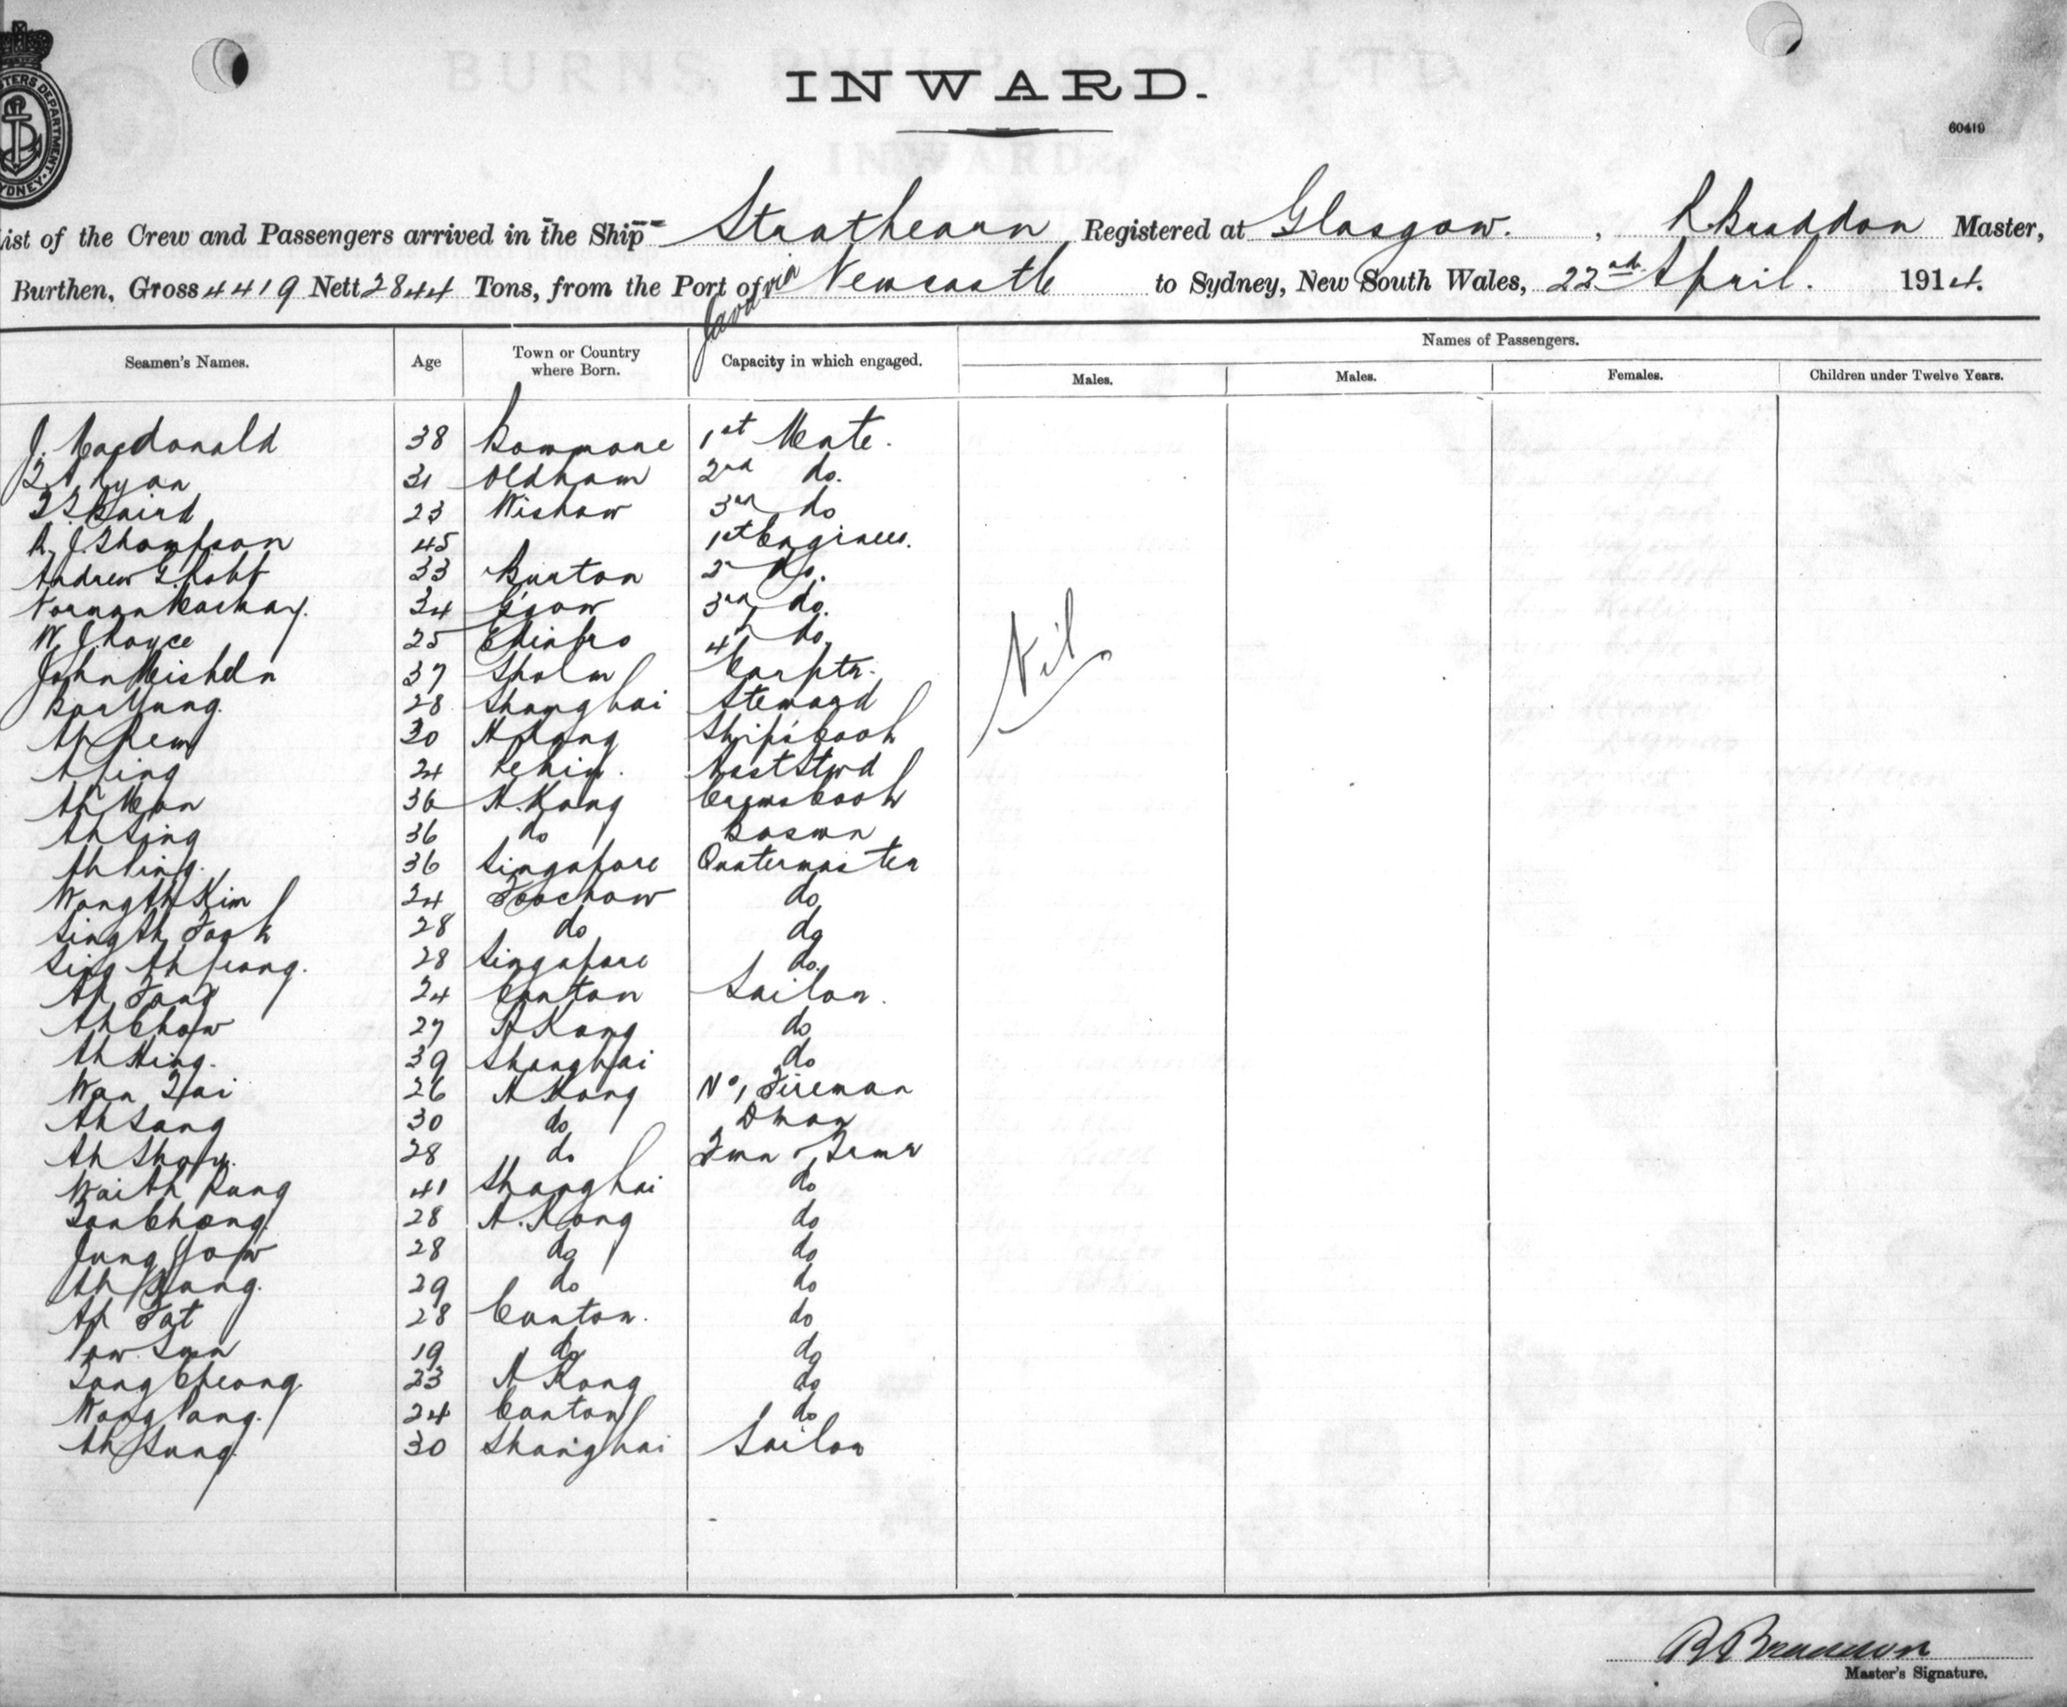 INWARD.
60419
TERS DEPARTMENT
YDNEY
ist of the Crew and Passengers arrived in the Ship Strathearn Registered at Glasgow. , R Braddon Master,
Burthen, Gross 4419 Nett 2844 Tons, from the Port of Java via Newcastle to Sydney, New South Wales, 22nd April. 1914.
Seamen's Names. Age Town or Country where Born. Capacity in which engaged. Names of Passengers.
Males. Males. Females. Children under Twelve Years.
J. Macdonald 38 Bowmore 1st Mate.
Ryan 31 Oldham 2nd do.
Baird 23 Wishaw 3rd do
A. J. Thompson 45 1st Engineer.
Andrew G. Robb 33 Burton 2 do.
Norman Mackay. 34 G'gow 3rd do.
W. J. Royce 25 4th do.
John 37 Sholm Carptr.
Bar Yung. 28 Shanghai Steward
Ah 30 H Kong Ship's Cook
A Ping 24 Pekin. Asst Stwd
Ah Mon 36 H. Kong Crews Cook
Ah Sing 36 do Boswn
Ah Ping. 36 Singapore Quatermaster
Wong Ah Kim 24 Foochow do
Sing Ah Fook 28 do do
Sing Ah 28 Singapore do.
Ah Fong 24 Canton Sailor.
Ah Chow 27 H Kong do
Ah Hing. 39 Shanghai do
Wan Tai 26 H Kong No 1 Fireman
Ah Sang 30 do Dkman
Ah 28 do Fmn Trmr
Wai Ah Pung 41 Shanghai do
Chong. 28 H. Kong do
Jung Yow 28 do do
Ah Kung. 29 do do
Ah Fat 28 Canton. do
19 do do
Sang Cheong. 23 H Kong do
Wong Pang. 24 Canton do
Ah Sung. 30 Shanghai Sailor
Nil
R Braddon
Master's Signature.